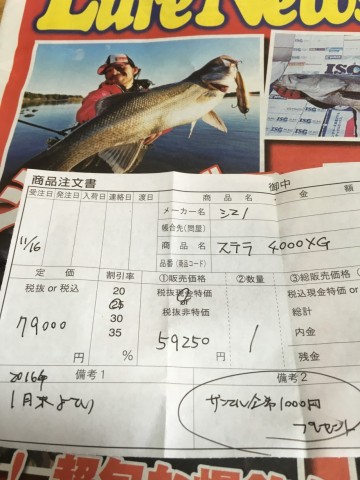 Lure News
ISG
商品注文書
御中
受注日 発注日 入荷日 連絡日 渡日
商品名 金額
11/16
メーカー名 シマノ
帳合先(問屋)
商品名 ステラ 4000XG
品番(商品コード)
定価 割引率 ①販売価格 ②数量 ③総販売価格(
税抜 or 税込 20 税抜現金特価 税込現金特価 or
25 or
30 税抜非特価 総計
79000 35 59250 1 内金
円 % 円 残金
備考1 備考2
2016年
1月末
1000円
プレゼント